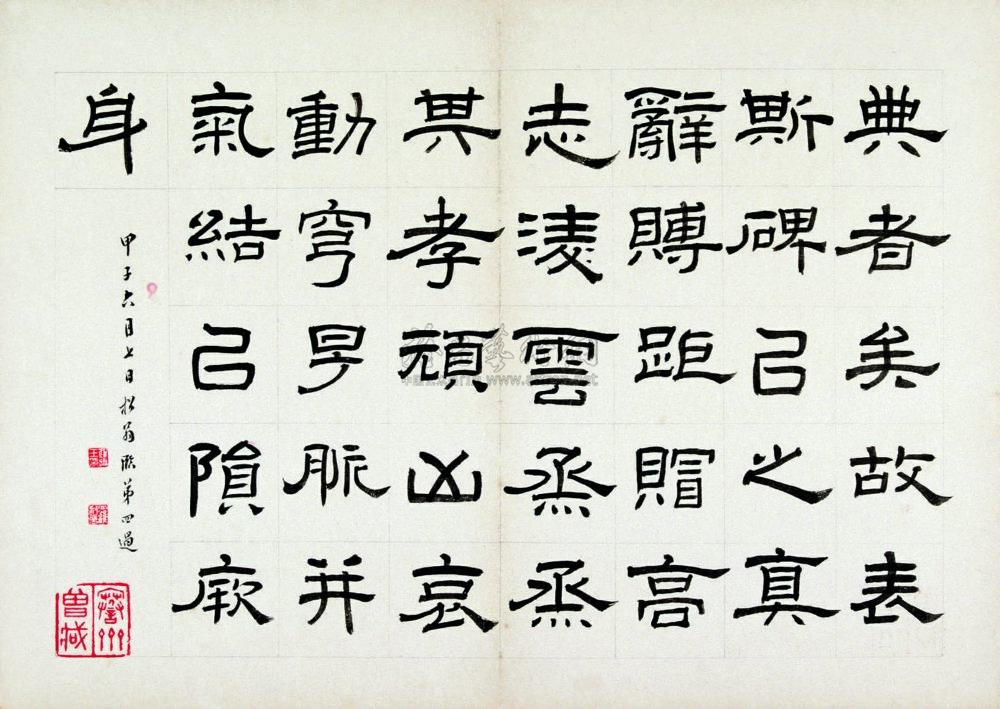 典者矣故表
斯碑已之真
辭賻距贈高
志淩雲烝烝
其孝頑凶哀
動穹旻脈并
氣結已隕厥
身
甲子六月七日松翁臨第四過